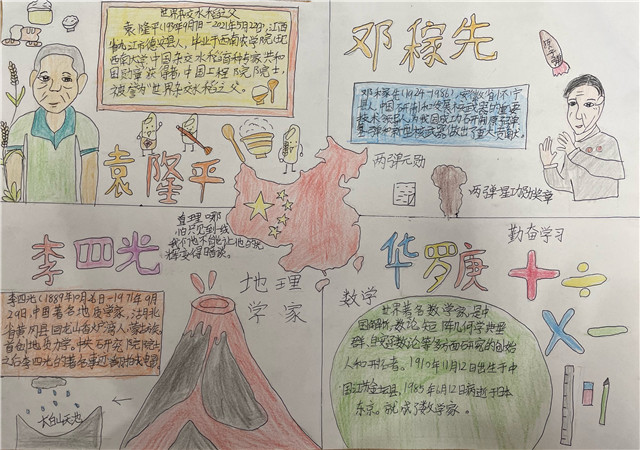 世界杂交水稻之父
袁隆平(1930年9月7日-2021年5月22日),江西
省九江市德安县人,毕业于西南农学院(现
西南大学)中国杂交水稻育种专家,共和
国勋章获得者,中国工程院院士,
被誉为"世界杂交水稻之父。
袁隆平
邓稼先
原子弹
邓稼先(1924-1986),安徽怀宁
县人,中国研制和发展核武器的重要
两弹元勋
两弹一星功勋奖章
李四光
真理哪
怕只见到一线
我们也不能让它的光
辉变得暗淡。
地理
学家
李四光(1889年10月26日-1971年4月
29日),中国著名地质学家,湖北
省黄冈县回龙山香炉湾人,蒙古族
首创地质力学。中央研究院院士
长白山天池
华罗庚
勤奋学习
数学
世界著名数学家,是中
国解析数论、矩阵几何学、典型
群、自守函数论等多方面研究的创始
人和开拓者。1910年11月12日出生于中
国江苏金坛县,1985年6月12日病逝于日本
东京。就成了数学家。